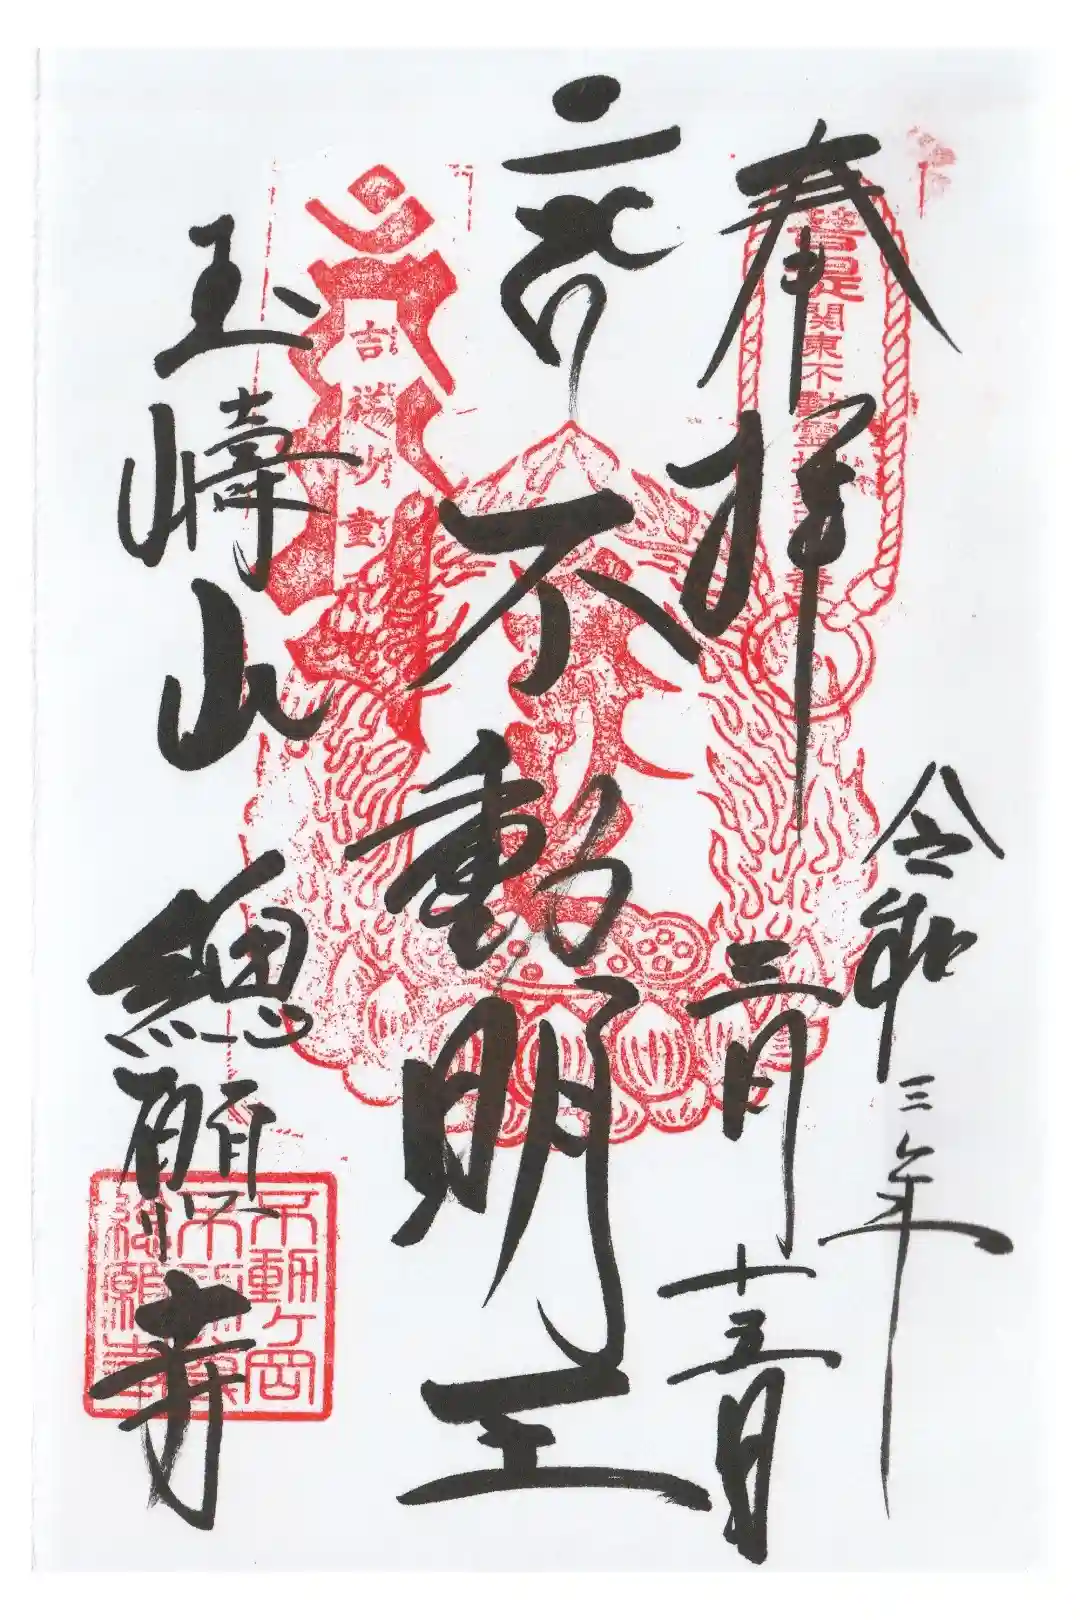 奉拝
令和三年
三月十五日
不動明王
玉嶹山
總願寺
菩提
関東不動霊場
吉祥
不動ヶ岡
不動尊
總願寺